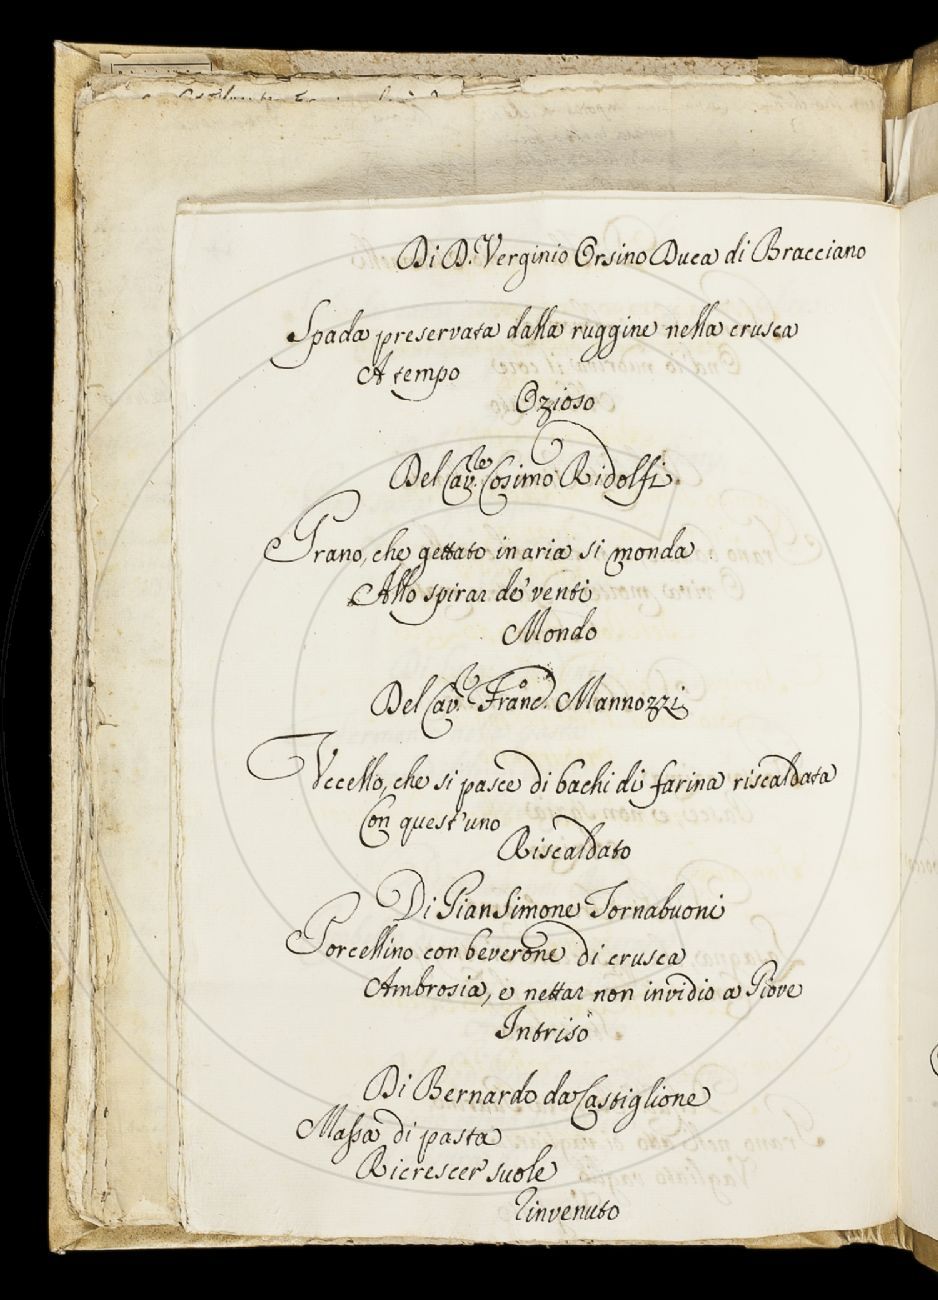 Di D. Verginio Orsino Duca di Bracciano
Spada preservata dalla ruggine nella crusca
A tempo
Ozioso
Del Cav.re Cosimo Ridolfi.
Grano, che gettato in aria si monda
Allo spirar de' venti
Mondo
Del Cav.re Franc.o Mannozzi
Vccello, che si pasce di bachi di farina riscaldata
Con quest'uno
Riscaldato
Di Gian Simone Tornabuoni
Porcellino con beverone di crusca
Ambrosia, e nettar non invidio a Giove
Intriso
Di Bernardo da Castiglione
Massa di pasta
Ricrescer suole
Rinvenuto